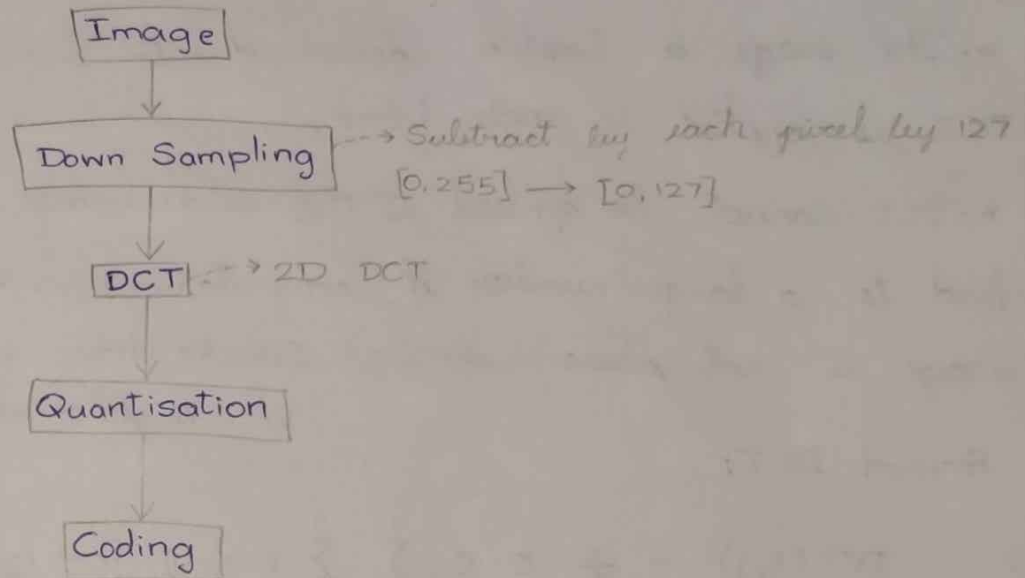 Image
Down Sampling
Subtract by each pixel by 127
[0, 255] → [0, 127]
DCT
2D DCT
Quantisation
Coding